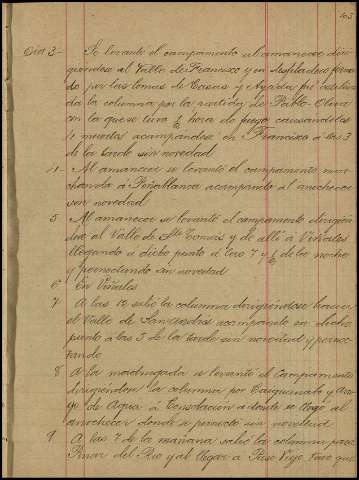 Dia 3- Se levantó el campamento al amanecer diri-
giendose al Valle de Francisco y en desfiladero forma-
do por las lomas de Cuevas y fué
da la columna por la partida de Pablo Oliva
con la que se tuvo ½ hora de fuego causandoles
4 muertos acampándose en Francisco a las 3
de la tarde sin novedad
4- Al amanecer se levantó el campamento mar-
chando á Peñablanca acampando al anochecer
sin novedad
5 Al amanecer se levantó el campamento dirigien-
dose al Valle de Sto Tomás y de allí á Viñales
llegando á dicho punto á las 7 y ½ de la noche
y pernoctando sin novedad
6 En Viñales
7 A las 12 salió la columna dirigiendose hacia
el Valle de San Andrés acampando en dicho
punto á las 3 de la tarde sin novedad y pernoc-
tando
8 A la madrugada se levantó el campamento
dirigiendose la columna por y
de Agua á Consolacion a donde se llegó al
anochecer donde se pernoctó sin novedad
9 A las 7 de la mañana salió la columna para
Pinar del Rio y al llegar á Paso Viejo tuvo que